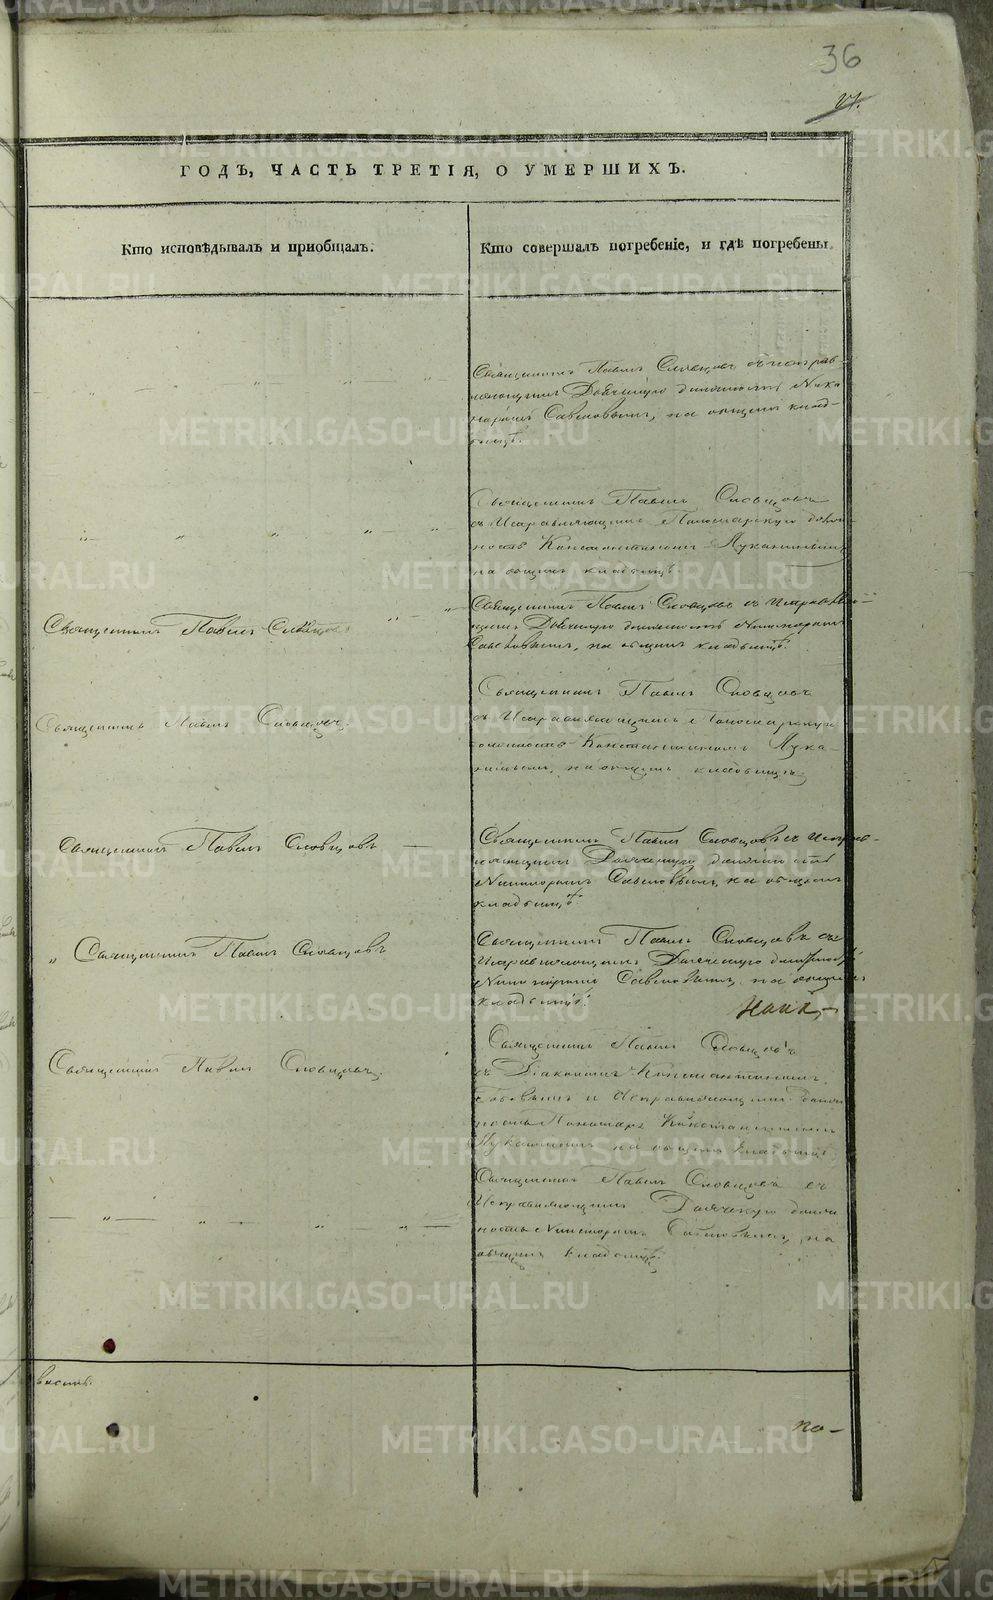 36
ГОДЪ, ЧАСТЬ ТРЕТІЯ, О УМЕРШИХЪ.
Кто исповѣдывалъ и приобщалъ.
Кто совершалъ погребеніе, и гдѣ погребены.
Священникъ Павелъ Словцовъ съ исправ-
ляющимъ Дьячецкую должность Ника-
норомъ Савеловымъ, на общемъ клад-
бищѣ.
Священникъ Павелъ Словцовъ
съ Исправляющимъ Пономарскую долж-
ность Константиномъ Луканинымъ
на общемъ кладбищѣ
Священникъ Павелъ Словцовъ
Священникъ Павелъ Словцовъ съ Исправляю-
щимъ Дьячецкую должность Никаноромъ
Савеловымъ, на общемъ кладбищѣ.
Священникъ Павелъ Словцовъ.
Священникъ Павелъ Словцовъ
съ Исправляющимъ Пономарскую
должность Константиномъ Лука-
нинымъ, на общемъ кладбищѣ
Священникъ Павелъ Словцовъ
Священникъ Павелъ Словцовъ съ Исправ-
ляющимъ Дьячецкую должность
Никаноромъ Савеловымъ, на общемъ
кладбищѣ.
Священникъ Павелъ Словцовъ
Священникъ Павелъ Словцовъ съ
Исправляющимъ Дьячецкую должность
Никаноромъ Савеловымъ, на общемъ
кладбищѣ.
Священникъ Павелъ Словцовъ.
Священникъ Павелъ Словцовъ
съ Діакономъ Константиномъ
и Исправляющимъ долж-
ность Пономаря Константиномъ
Луканинымъ на общемъ кладбищѣ
Священникъ Павелъ Словцовъ съ
Исправляющимъ Дьячецкую долж-
ность Никаноромъ Савеловымъ, на
общемъ кладбищѣ.
по-
METRIKI.GASO-URAL.RU